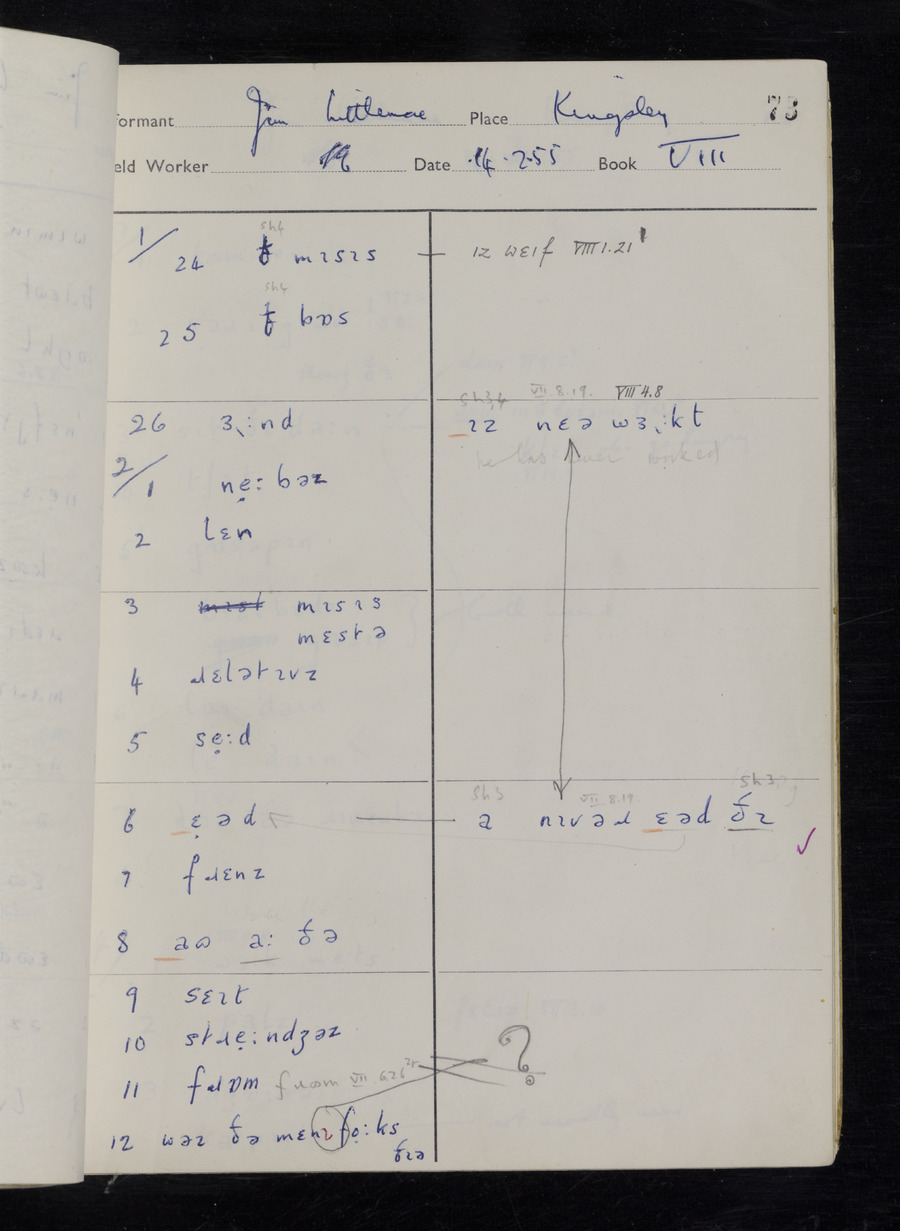 formant Jim Littlemore Place Kingsley 73
eld Worker Date 14.2.55 Book VIII
1/
sh4
24 mɪsɪs ɪz wɛɪf VIII 1.21
sh4
25 bɒs
sh3,4 VII 8.19. VIII 4.8
26 ɜ˞:nd ɪz nɛə wɜ˞:kt
he has never worked
2/1 nẹ:bəz
2 lɛn
3 mɪst mɪsɪs
mɛstə
4 ɹɛlətɪvz
5 sẹ:d
sh3 VII 8.19 sh3
6 ɛ̣əd ə nɪvəɹ ɛəd ðɪ ✓
7 fɹɛnz
8 aɷ a: ðə
9 sɛɪt
10 stɹẹ:ndʒəz
11 fɹɒm fɹɷm VII 6.26 ?
12 wəz ðə mɛnzfọ:ks
ðɪə